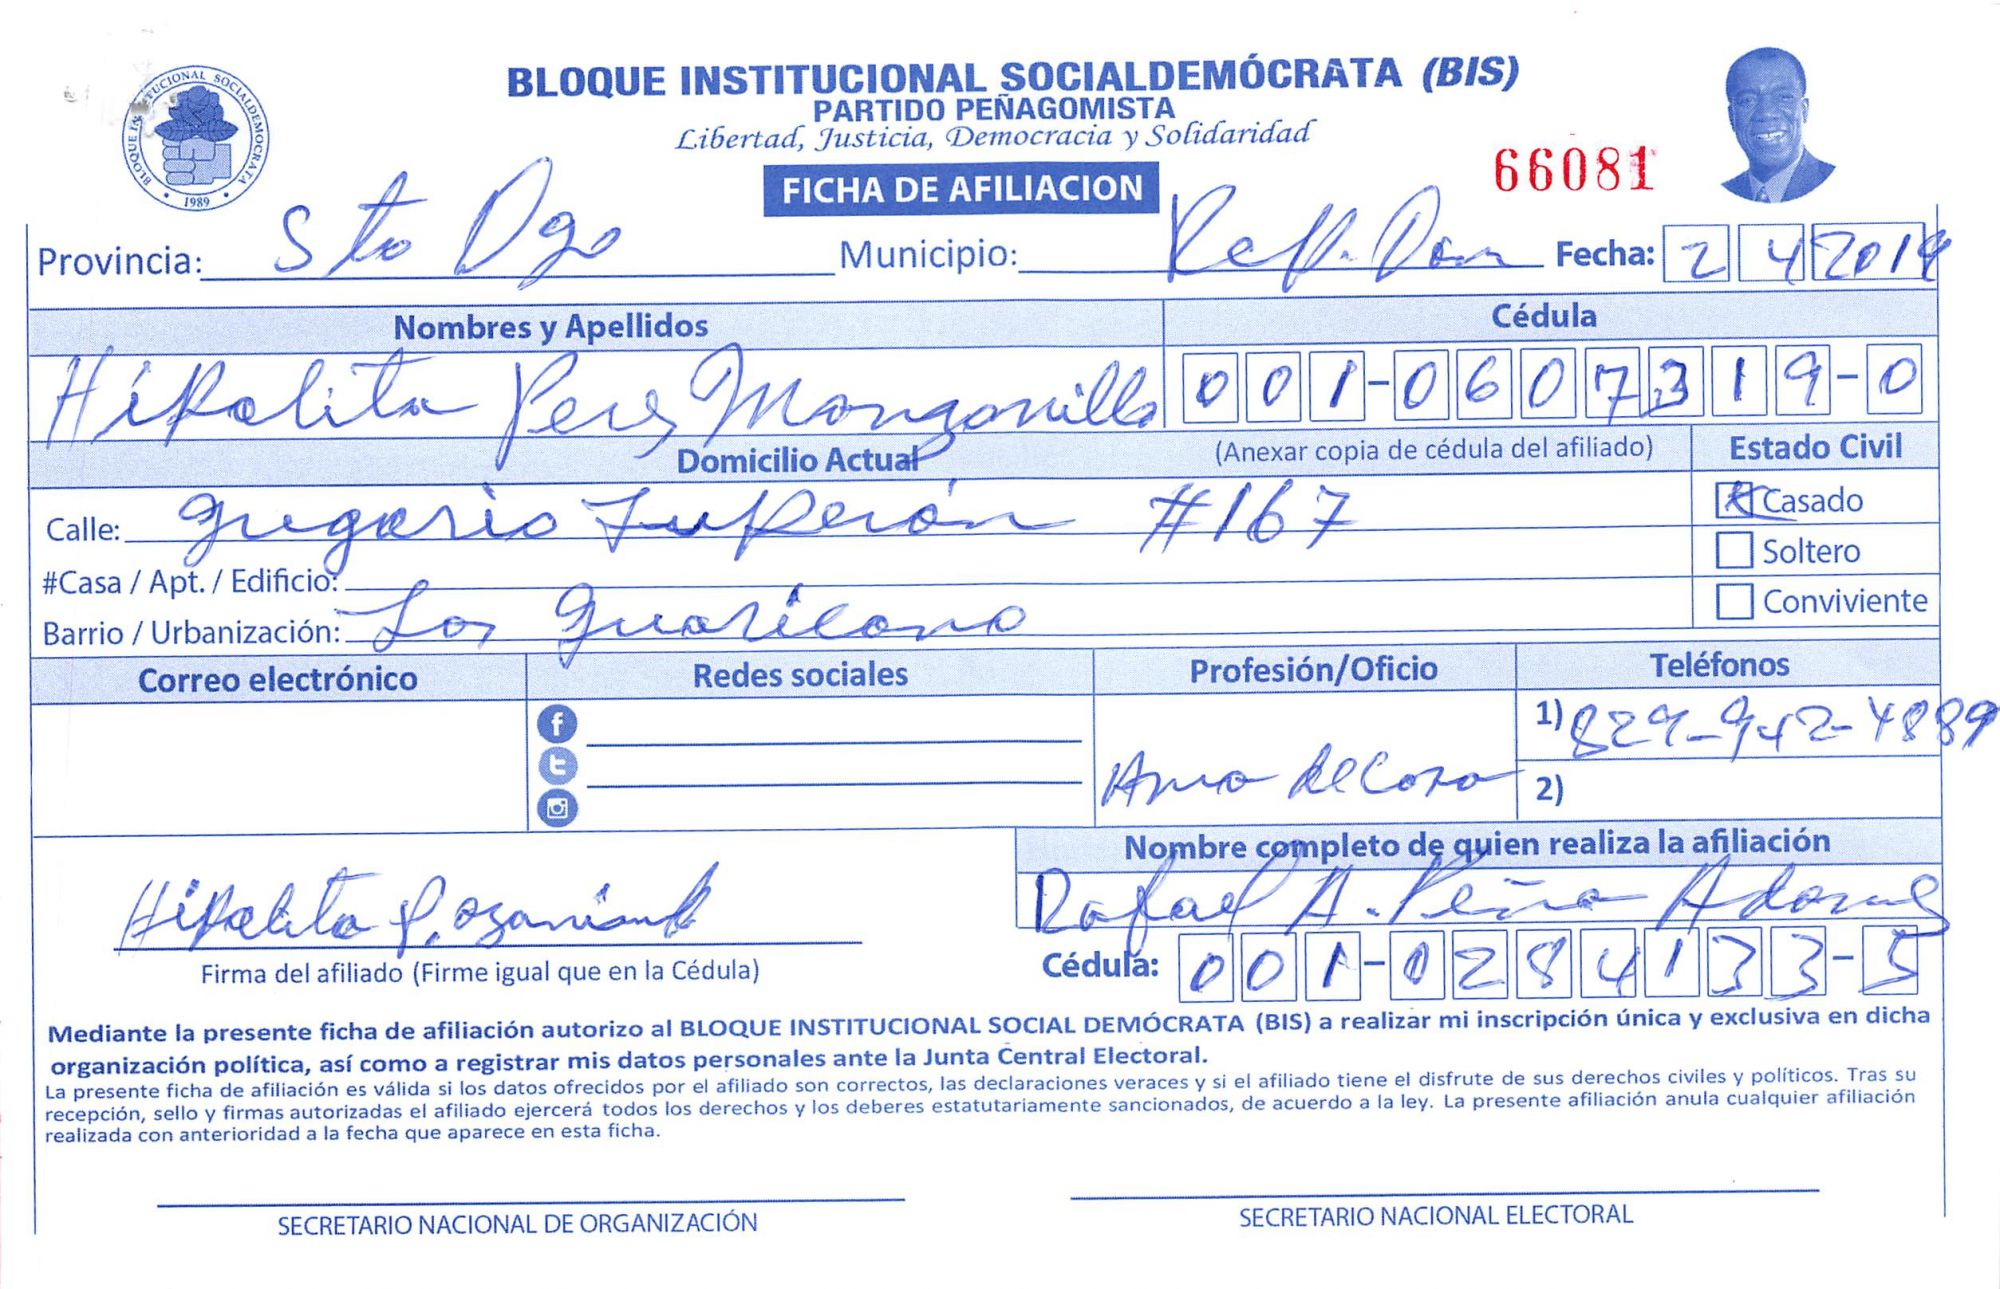 BLOQUE INSTITUCIONAL SOCIALDEMÓCRATA (BIS)
PARTIDO PEÑAGOMISTA
Libertad, Justicia, Democracia y Solidaridad
BLOQUE INSTITUCIONAL SOCIALDEMOCRATA
1989
66081
FICHA DE AFILIACION
Provincia: Sto Dgo Municipio: Rep. Dom Fecha: 2 4 2019
Nombres y Apellidos Cédula
Hipolita Peres Manzanillo 001-0607319-0
Domicilio Actual (Anexar copia de cédula del afiliado) Estado Civil
Calle: Gregorio Luperón #167 Casado
#Casa / Apt. / Edificio: Soltero
Barrio / Urbanización: Los Guaricano Conviviente
Correo electrónico Redes sociales Profesión/Oficio Teléfonos
1) 829-942-4889
Ama de Casa
2)
Nombre completo de quien realiza la afiliación
Hipolita P. Rafael A. Peña Adames
Firma del afiliado (Firme igual que en la Cédula) Cédula: 001-0284133-5
Mediante la presente ficha de afiliación autorizo al BLOQUE INSTITUCIONAL SOCIAL DEMÓCRATA (BIS) a realizar mi inscripción única y exclusiva en dicha
organización política, así como a registrar mis datos personales ante la Junta Central Electoral.
La presente ficha de afiliación es válida si los datos ofrecidos por el afiliado son correctos, las declaraciones veraces y si el afiliado tiene el disfrute de sus derechos civiles y políticos. Tras su
recepción, sello y firmas autorizadas el afiliado ejercerá todos los derechos y los deberes estatutariamente sancionados, de acuerdo a la ley. La presente afiliación anula cualquier afiliación
realizada con anterioridad a la fecha que aparece en esta ficha.
SECRETARIO NACIONAL DE ORGANIZACIÓN SECRETARIO NACIONAL ELECTORAL